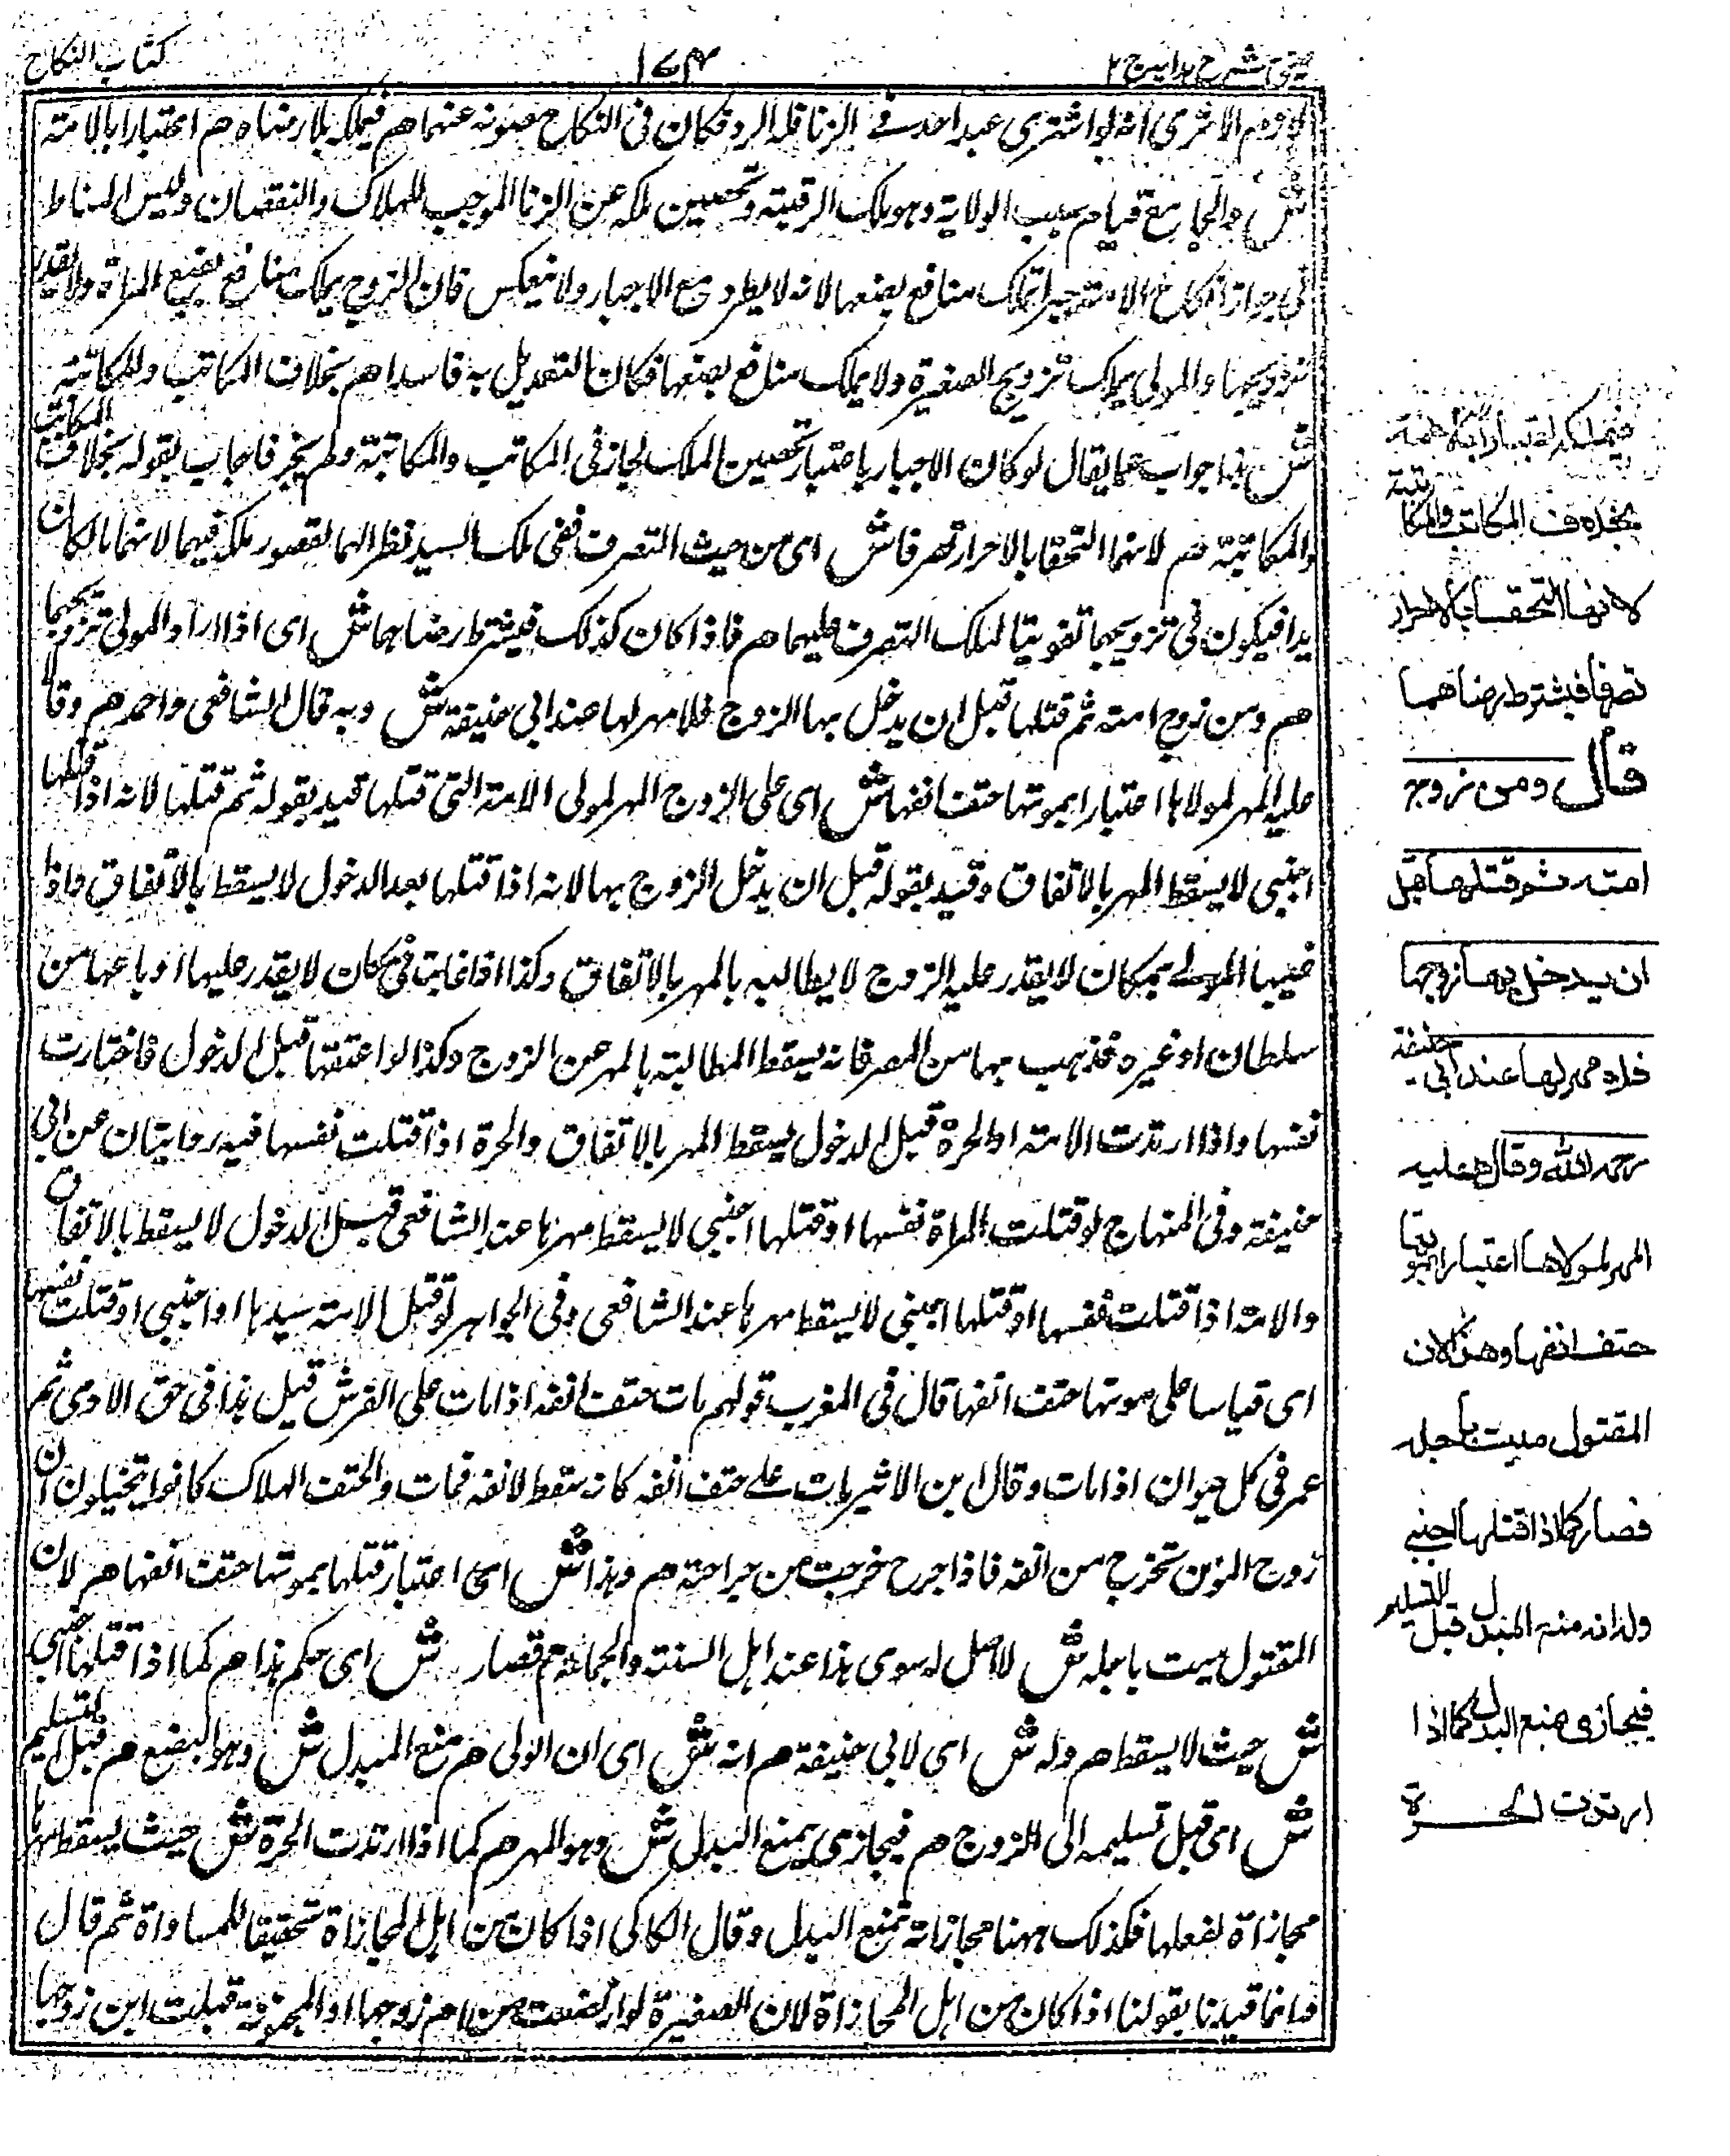 عینی شرح ہدایہ ج ٢
١٧٤
كتاب النكاح
انه لو اشترى عبدا فى الزنا فله الرد فكان فى النكاح صونه عنهما هم فيملكه بلا رضاه هم اعتبارا بالامة
ش والجامع قيام سبب الولاية وهو ملك الرقبة وتحصين ملكه عن الزنا الموجب للهلاك والنقصان وليس المناط
فى جواز انكاح الامة جبرا تملك منافع بضعها لانه لا يطرد مع الاجبار ولا ينعكس فان الزوج يملك منافع بضع المرأة ولا يقدر
تزويجها والمولى يملك تزويج الصغيرة ولا يملك منافع بضعها فكان التعديل به فاسدا هم بخلاف المكاتب والمكاتبة
ش هذا جواب عما يقال لو كان الاجبار باعتبار تحصين الملك لجاز فى المكاتب والمكاتبة ولم يجز فاجاب بقوله بخلاف المكاتب
والمكاتبة هم لانهما التحقا بالاحرار تصرفا ش اى من حيث التصرف ففى ملك السيد نظر الهما لقصور ملكه فيهما لانهما مالكان
يدا فيكون فى تزويجهما تفويتا لملك التصرف عليهما هم فاذا كان كذلك فيشترط رضاهما ش اى اذا اراد المولى تزويجهما
هم ومن زوج امته ثم قتلها قبل ان يدخل بها الزوج فلا مهر لها عند ابى حنيفة ش وبه قال الشافعى واحمد هم وقالا
عليه المهر لمولاها اعتبارا بموتها حتف انفها ش اى على الزوج المهر لمولى الامة التى قتلها قيد بقوله ثم قتلها لانه اذا قتلها
اجنبى لا يسقط المهر بالاتفاق وقيد بقوله قبل ان يدخل الزوج بها لانه اذا قتلها بعد الدخول لا يسقط بالاتفاق واذا
غيبها المولى بمكان لا يقدر عليه الزوج لا يطالبه بالمهر بالاتفاق وكذا اذا غابت فى مكان لا يقدر عليها او باعها من
سلطان او غيره فذهب بها من المصر فانه يسقط المطالبة بالمهر عن الزوج وكذا لو اعتقها قبل الدخول فاختارت
نفسها واذا ارتدت الامة او الحرة قبل الدخول يسقط المهر بالاتفاق والحرة اذا قتلت نفسها فيه روايتان عن ابى
حنيفة وفى المنهاج لو قتلت المرأة نفسها او قتلها اجنبى لا يسقط مهرها عند الشافعى قبل الدخول لا يسقط بالاتفاق
والامة اذا قتلت نفسها او قتلها اجنبى لا يسقط مهرها عند الشافعى وفى الجواهر لو قتل الامة سيدها او اجنبى او قتلت نفسها
اى قياسا على موتها حتف انفها قال فى المغرب قولهم مات حتف انفه اذا مات على الفرش قيل هذا فى حق الادمى ثم
عم فى كل حيوان اذا مات وقال ابن الاثير مات على حتف انفه كانه سقط لانفه فمات والحتف الهلاك كانوا يتخيلون ان
روح المؤمن تخرج من انفه فاذا جرح خرجت من جراحته هم وهذا ش اى اعتبار قتلها بموتها حتف انفها هم لان
المقتول ميت باجله ش لا اجل له سوى هذا عند اهل السنة والجماعة هم فصار ش اى حكم هذا هم كما اذا قتلها اجنبى
ش حيث لا يسقط هم وله ش اى لابى حنيفة هم انه ش اى ان المولى هم منع المبدل ش وهو البضع هم قبل التسليم
ش اى قبل تسليمه الى الزوج هم فيجازى بمنع البدل ش وهو المهر هم كما اذا ارتدت الحرة ش حيث يسقط مهرها
مجازاة لفعلها فكذلك ههنا مجازاته تمنع البدل وقال الكاكى اذا كان من اهل المجازاة تحقيقا للمساواة ثم قال
وانما قيدنا بقولنا اذا كان من اهل المجازاة لان الصغيرة لو ارتضعت من ام زوجها او المجنونة قبلت ابن زوجها
بخلاف المكاتب والمكاتبة
لانهما التحقا بالاحرار
تصرفا فيشترط رضاهما
قال ومن زوج
امته ثم قتلها قبل
ان يدخل بها زوجها
فلا مهر لها عند ابى حنيفة
رحمه الله وقالا عليه
المهر لمولاها اعتبارا بموتها
حتف انفها وهذا لان
المقتول ميت باجله
فصار كما اذا قتلها اجنبى
وله انه منع المبدل قبل التسليم
فيجازى بمنع البدل كما اذا
ارتدت الحرة